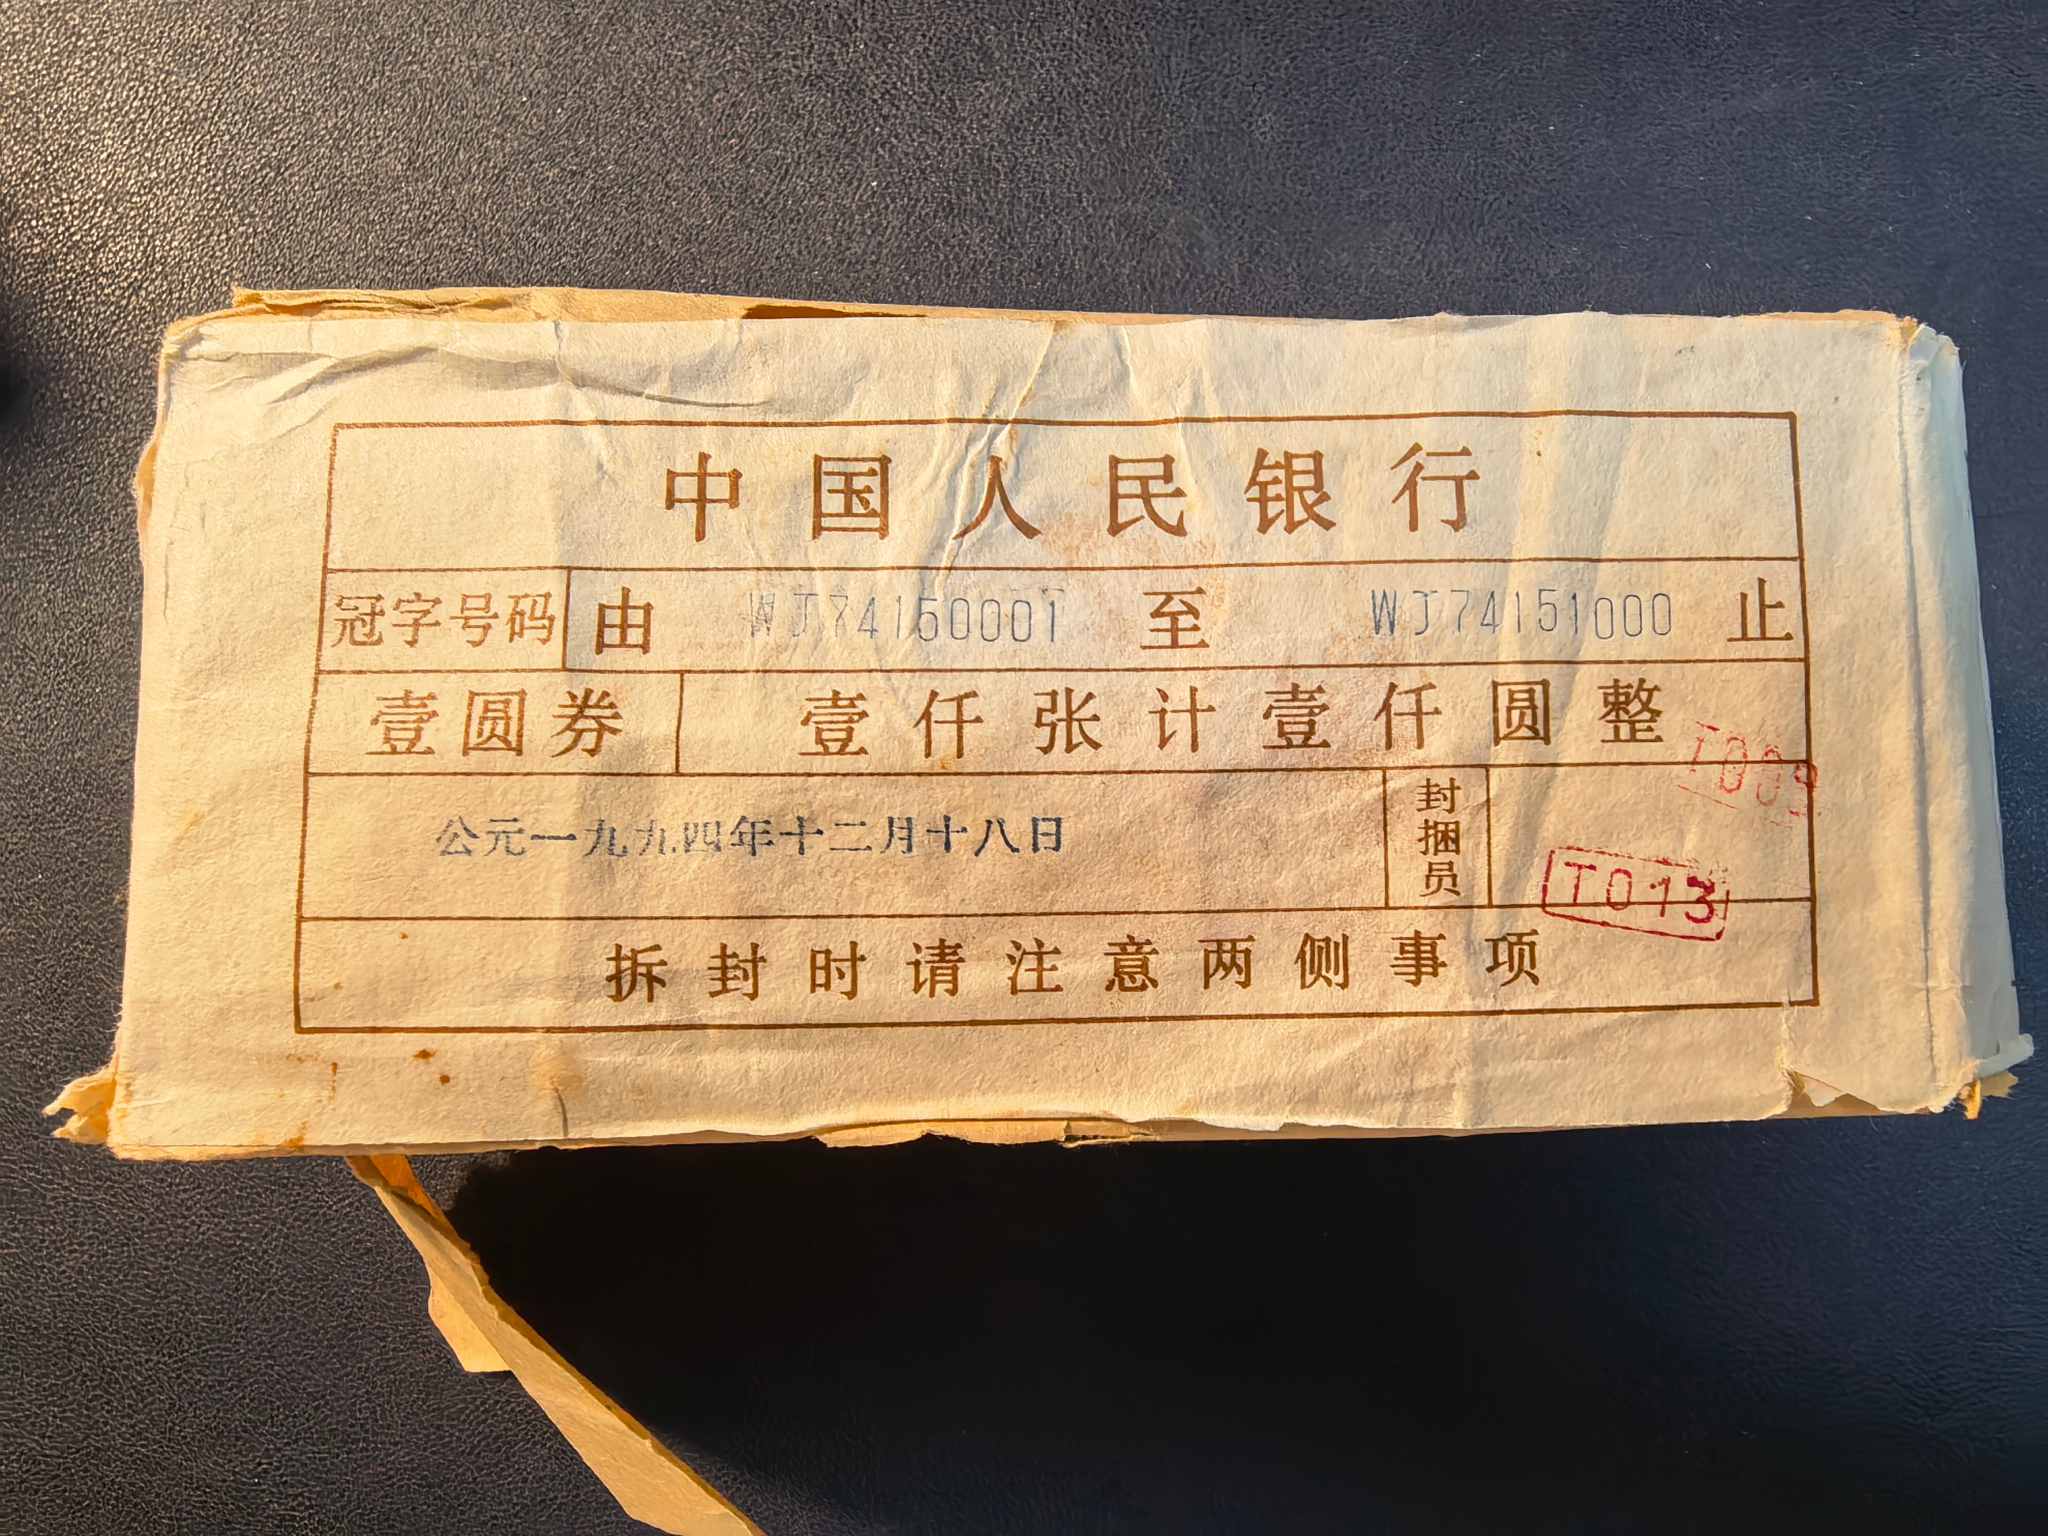 中国人民银行
冠字号码 由 WJ74150001 至 WJ74151000 止
壹圆券 壹仟张计壹仟圆整
T009
公元一九九四年十二月十八日 封捆员
T013
拆封时请注意两侧事项